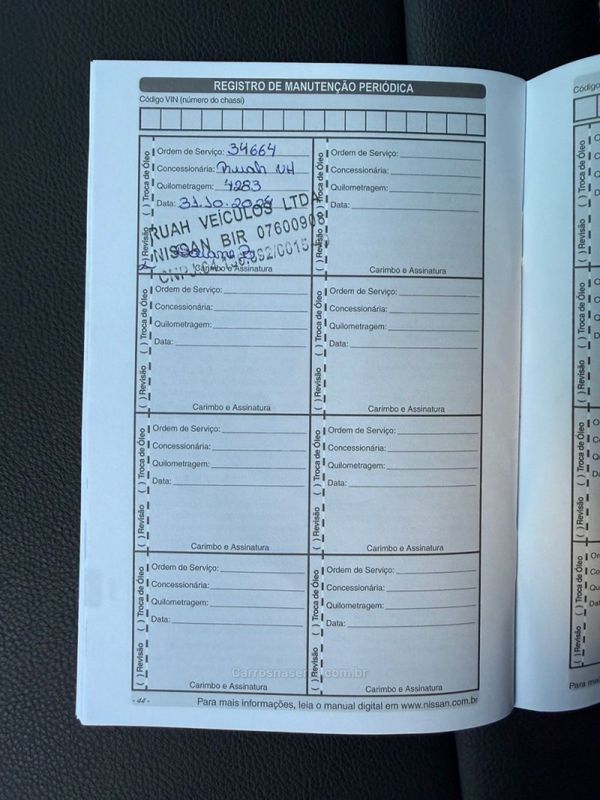 REGISTRO DE MANUTENÇÃO PERIÓDICA
Código VIN (número do chassi)
( ) Revisão ( ) Troca de Óleo
Ordem de Serviço: 34664
Concessionária: Ruah VH
Quilometragem: 4283
Data: 31.10.2024
RUAH VEÍCULOS LTDA
NISSAN BIR 07600908
Carimbo e Assinatura
( ) Revisão ( ) Troca de Óleo
Ordem de Serviço:
Concessionária:
Quilometragem:
Data:
Carimbo e Assinatura
( ) Revisão ( ) Troca de Óleo
Ordem de Serviço:
Concessionária:
Quilometragem:
Data:
Carimbo e Assinatura
( ) Revisão ( ) Troca de Óleo
Ordem de Serviço:
Concessionária:
Quilometragem:
Data:
Carimbo e Assinatura
( ) Revisão ( ) Troca de Óleo
Ordem de Serviço:
Concessionária:
Quilometragem:
Data:
Carimbo e Assinatura
( ) Revisão ( ) Troca de Óleo
Ordem de Serviço:
Concessionária:
Quilometragem:
Data:
Carimbo e Assinatura
( ) Revisão ( ) Troca de Óleo
Ordem de Serviço:
Concessionária:
Quilometragem:
Data:
Carimbo e Assinatura
( ) Revisão ( ) Troca de Óleo
Ordem de Serviço:
Concessionária:
Quilometragem:
Data:
Carimbo e Assinatura
Carrosnaserra.com.br
- 44 -
Para mais informações, leia o manual digital em www.nissan.com.br